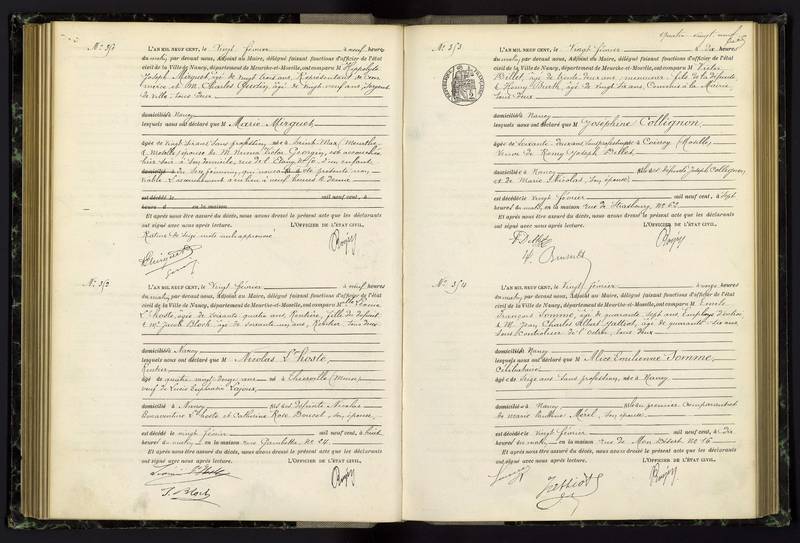 Nº 351
L'AN MIL NEUF CENT, le Vingt février à neuf heures
du matin, par devant nous, Adjoint au Maire, délégué faisant fonctions d'officier de l'état
civil de la Ville de Nancy, département de Meurthe-et-Moselle, ont comparu M Hippolyte
Joseph Merguet, âgé de vingt trois ans, Représentant de Com
merce et M. Charles âgé de vingt neuf ans, Sergent
de ville, tous deux
domiciliés à Nancy
lesquels nous ont déclaré que M Marie Merguet
âgée de vingt six ans sans profession, née à Saint-Max (Meurthe
& Moselle) épouse de M. Victor Georgin, est accouchée
hier soir à son domicile, rue de l'Etang Nº 50 d'un enfant
du Sexe féminin, qui nous a été présenté non
viable. L'accouchement a eu lieu à neuf heures & demie
est décédé le mil neuf cent, à
heure d en la maison
Et après nous être assuré du décès, nous avons dressé le présent acte que les déclarants
ont signé avec nous après lecture. L'OFFICIER DE L'ÉTAT CIVIL,
Rature de Seize mots nuls approuvée
Nº 352
L'AN MIL NEUF CENT, le Vingt février à neuf heures
du matin, par devant nous, Adjoint au Maire, délégué faisant fonctions d'officier de l'état
civil de la Ville de Nancy, département de Meurthe-et-Moselle, ont comparu Mlle
L'hoste, âgée de soixante quatre ans, Rentière, fille du défunt
& Mr Jacob Bloch, âgé de soixante un ans, Rentier, tous deux
domiciliés à Nancy
lesquels nous ont déclaré que M Nicolas L'hoste
Rentier
âgé de quatre vingt onze ans né à Thierville (Meuse)
veuf de Lucie Lajoux
domicilié à Nancy fils des défunts Nicolas
Bonaventure L'hoste et Catherine Rose son épouse
est décédé le vingt février mil neuf cent, à huit
heures du matin en la maison rue Gambetta Nº 24
Et après nous être assuré du décès, nous avons dressé le présent acte que les déclarants
ont signé avec nous après lecture. L'OFFICIER DE L'ÉTAT CIVIL,
L'Hoste
J. Bloch
Quatre-vingt neuf
Nº 353
L'AN MIL NEUF CENT, le Vingt février à dix heures
du matin, par devant nous, Adjoint au Maire, délégué faisant fonctions d'officier de l'état
civil de la Ville de Nancy, département de Meurthe-et-Moselle, ont comparu M Victor
âgé de trente deux ans, menuisier, fils de la défunte
& Henry âgé de vingt six ans, Concierge à la Mairie,
tous deux
domiciliés à Nancy
lesquels nous ont déclaré que M Joséphine Collignon
âgée de soixante deux ans née à Coincy (Moselle)
veuve de Remy Joseph
domiciliée à Nancy fille des défunts Joseph Collignon
et de Marie Nicolas, son épouse
est décédée le vingt février mil neuf cent, à sept
heures du matin, en la maison rue de Strasbourg, Nº 62
Et après nous être assuré du décès, nous avons dressé le présent acte que les déclarants
ont signé avec nous après lecture. L'OFFICIER DE L'ÉTAT CIVIL,
Nº 354
L'AN MIL NEUF CENT, le Vingt février à onze heures
du matin, par devant nous, Adjoint au Maire, délégué faisant fonctions d'officier de l'état
civil de la Ville de Nancy, département de Meurthe-et-Moselle, ont comparu M Emile
François Somme, âgé de quarante sept ans, Employé d'octroi
& M. Jean Charles Albert âgé de quarante six ans
Sous Contrôleur de l'Octroi, tous deux
domiciliés à Nancy
lesquels nous ont déclaré que M Alice Emilienne Somme
Célibataire
âgée de seize ans sans profession, née à Nancy
domiciliée à Nancy fille du premier comparant et
de Marie Pauline Morel, son épouse
est décédée le vingt février mil neuf cent, à dix
heures du matin, en la maison rue de Mon Désert Nº 16
Et après nous être assuré du décès, nous avons dressé le présent acte que les déclarants
ont signé avec nous après lecture. L'OFFICIER DE L'ÉTAT CIVIL,